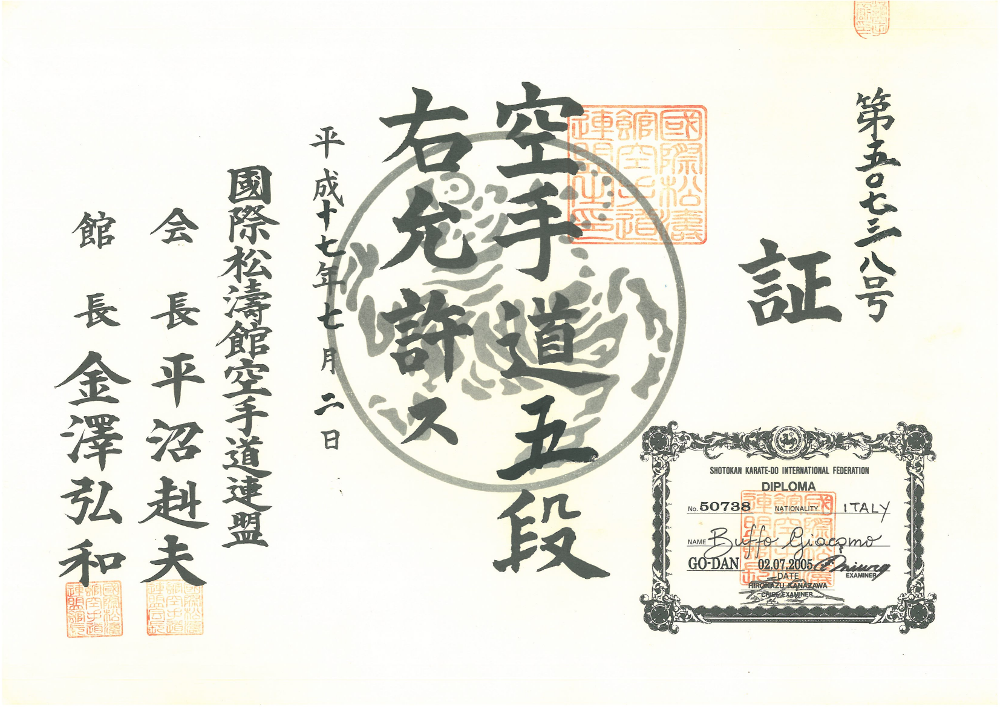 第五〇七三八号
証
空手道五段
右允許ス
平成十七年七月二日
國際松濤館空手道連盟
会長 平沼赳夫
館長 金澤弘和
SHOTOKAN KARATE-DO INTERNATIONAL FEDERATION
DIPLOMA
No. 50738 NATIONALITY ITALY
NAME Buffo Giacomo
GO-DAN 02.07.2005 Miura
DATE EXAMINER
HIROKAZU KANAZAWA
CHIEF EXAMINER